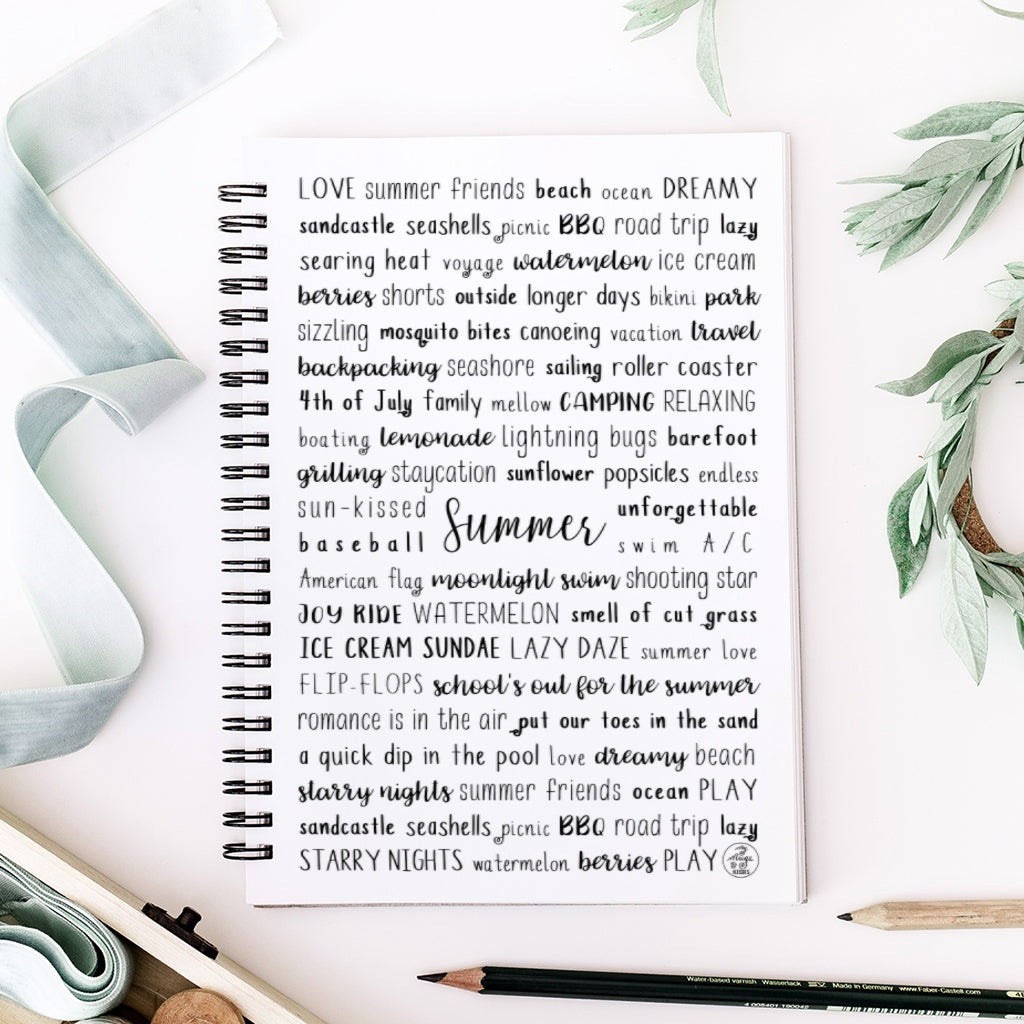 LOVE summer friends beach ocean DREAMY
sandcastle seashells picnic BBQ road trip lazy
searing heat voyage watermelon ice cream
berries shorts outside longer days bikini park
sizzling mosquito bites canoeing vacation travel
backpacking seashore sailing roller coaster
4th of July family mellow CAMPING RELAXING
boating lemonade lightning bugs barefoot
grilling staycation sunflower popsicles endless
sun-kissed Summer unforgettable
baseball swim A/C
American flag moonlight swim shooting star
JOY RIDE WATERMELON smell of cut grass
ICE CREAM SUNDAE LAZY DAZE summer love
FLIP-FLOPS school's out for the summer
romance is in the air put our toes in the sand
a quick dip in the pool love dreamy beach
starry nights summer friends ocean PLAY
sandcastle seashells picnic BBQ road trip lazy
STARRY NIGHTS watermelon berries PLAY
Water-based varnish Wasserlack Made in Germany www.Faber-Castell.com
4 005401 190042